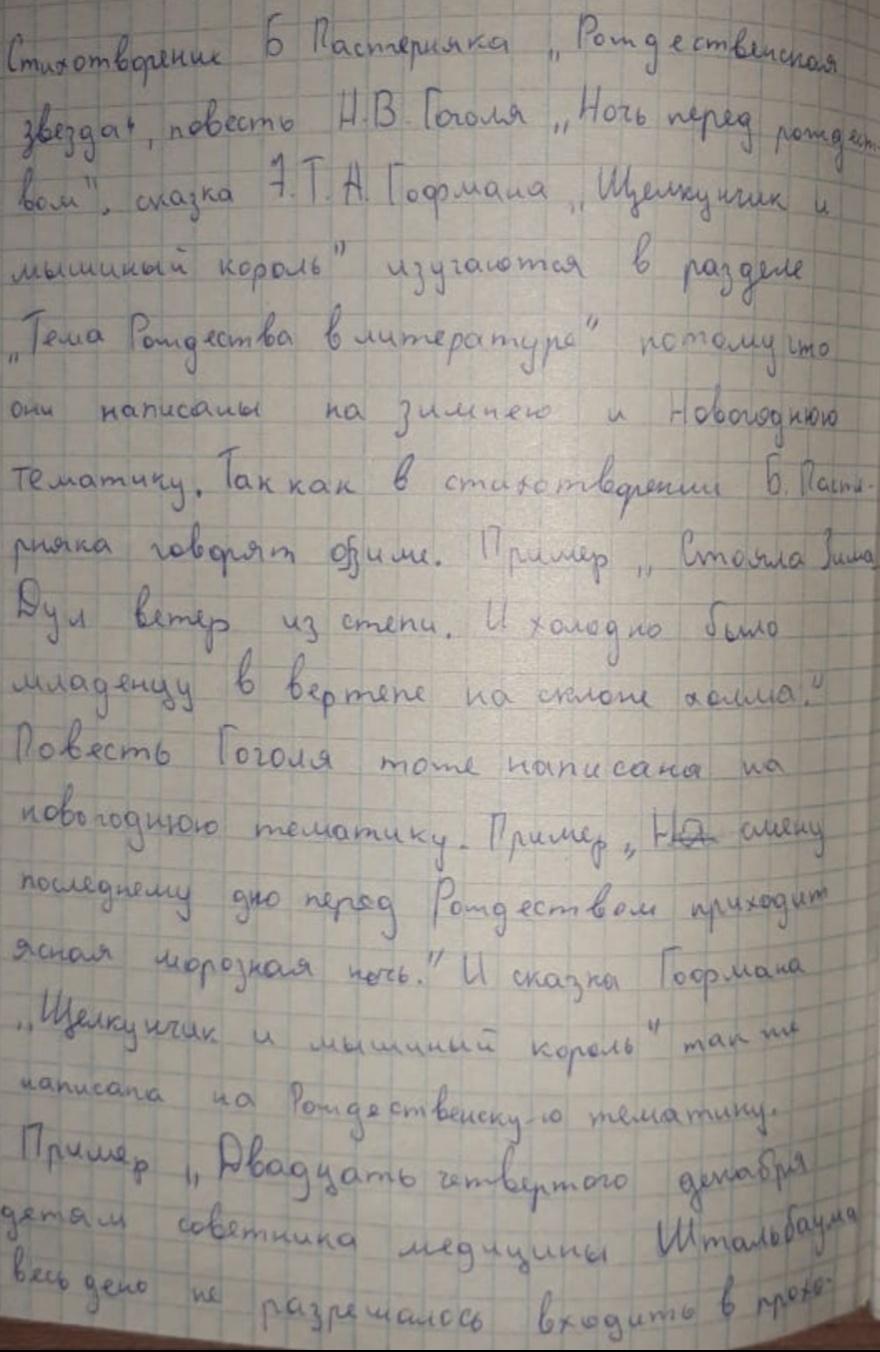 Стихотворение Б Пастернака „Рождественская
звезда", повесть Н.В. Гоголя „Ночь перед рождест-
вом", сказка Э.Т.А. Гофмана „Щелкунчик и
мышиный король" изучаются в разделе
„Тема Рождества в литературе" потому что
они написаны на зимнею и Новогоднюю
тематику. Так как в стихотворении Б. Пасте-
рнака говорят о зиме. Пример „Стояла Зима
Дул ветер из степи. И холодно было
младенцу в вертепе на склоне холма."
Повесть Гоголя тоже написана на
новогоднюю тематику. Пример „На смену
последнему дню перед Рождеством приходит
ясная морозная ночь." И сказка Гофмана
„Щелкунчик и мышиный король" так же
написана на Рождественскую тематику.
Пример „Двадцать четвертого декабря
детям советника медицины Штальбаума
весь день не разрешалось входить в прохо-